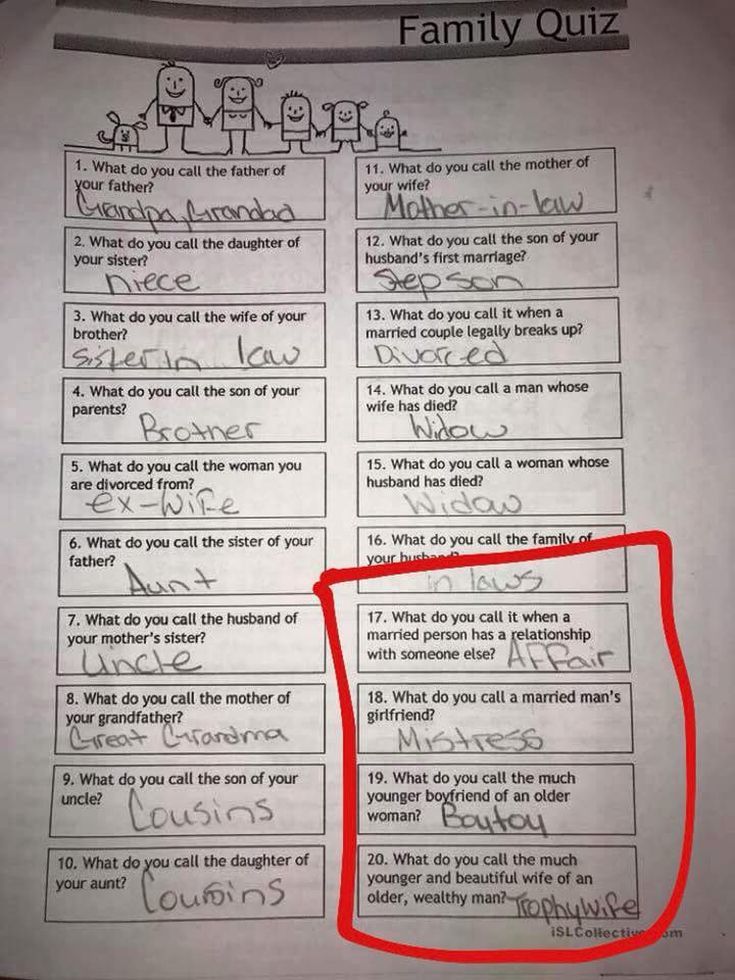 Family Quiz
1. What do you call the father of
your father?
Grandpa, Grandad
2. What do you call the daughter of
your sister?
niece
3. What do you call the wife of your
brother?
Sister in law
4. What do you call the son of your
parents?
Brother
5. What do you call the woman you
are divorced from?
ex-wife
6. What do you call the sister of your
father?
Aunt
7. What do you call the husband of
your mother's sister?
Uncle
8. What do you call the mother of
your grandfather?
Great Grandma
9. What do you call the son of your
uncle? Cousins
10. What do you call the daughter of
your aunt? Cousins
11. What do you call the mother of
your wife?
Mother-in-law
12. What do you call the son of your
husband's first marriage?
Step son
13. What do you call it when a
married couple legally breaks up?
Divorced
14. What do you call a man whose
wife has died?
Widow
15. What do you call a woman whose
husband has died?
Widow
16. What do you call the family of
your husband?
in laws
17. What do you call it when a
married person has a relationship
with someone else? Affair
18. What do you call a married man's
girlfriend?
Mistress
19. What do you call the much
younger boyfriend of an older
woman? Boytoy
20. What do you call the much
younger and beautiful wife of an
older, wealthy man? Trophy Wife
iSLCollective.com